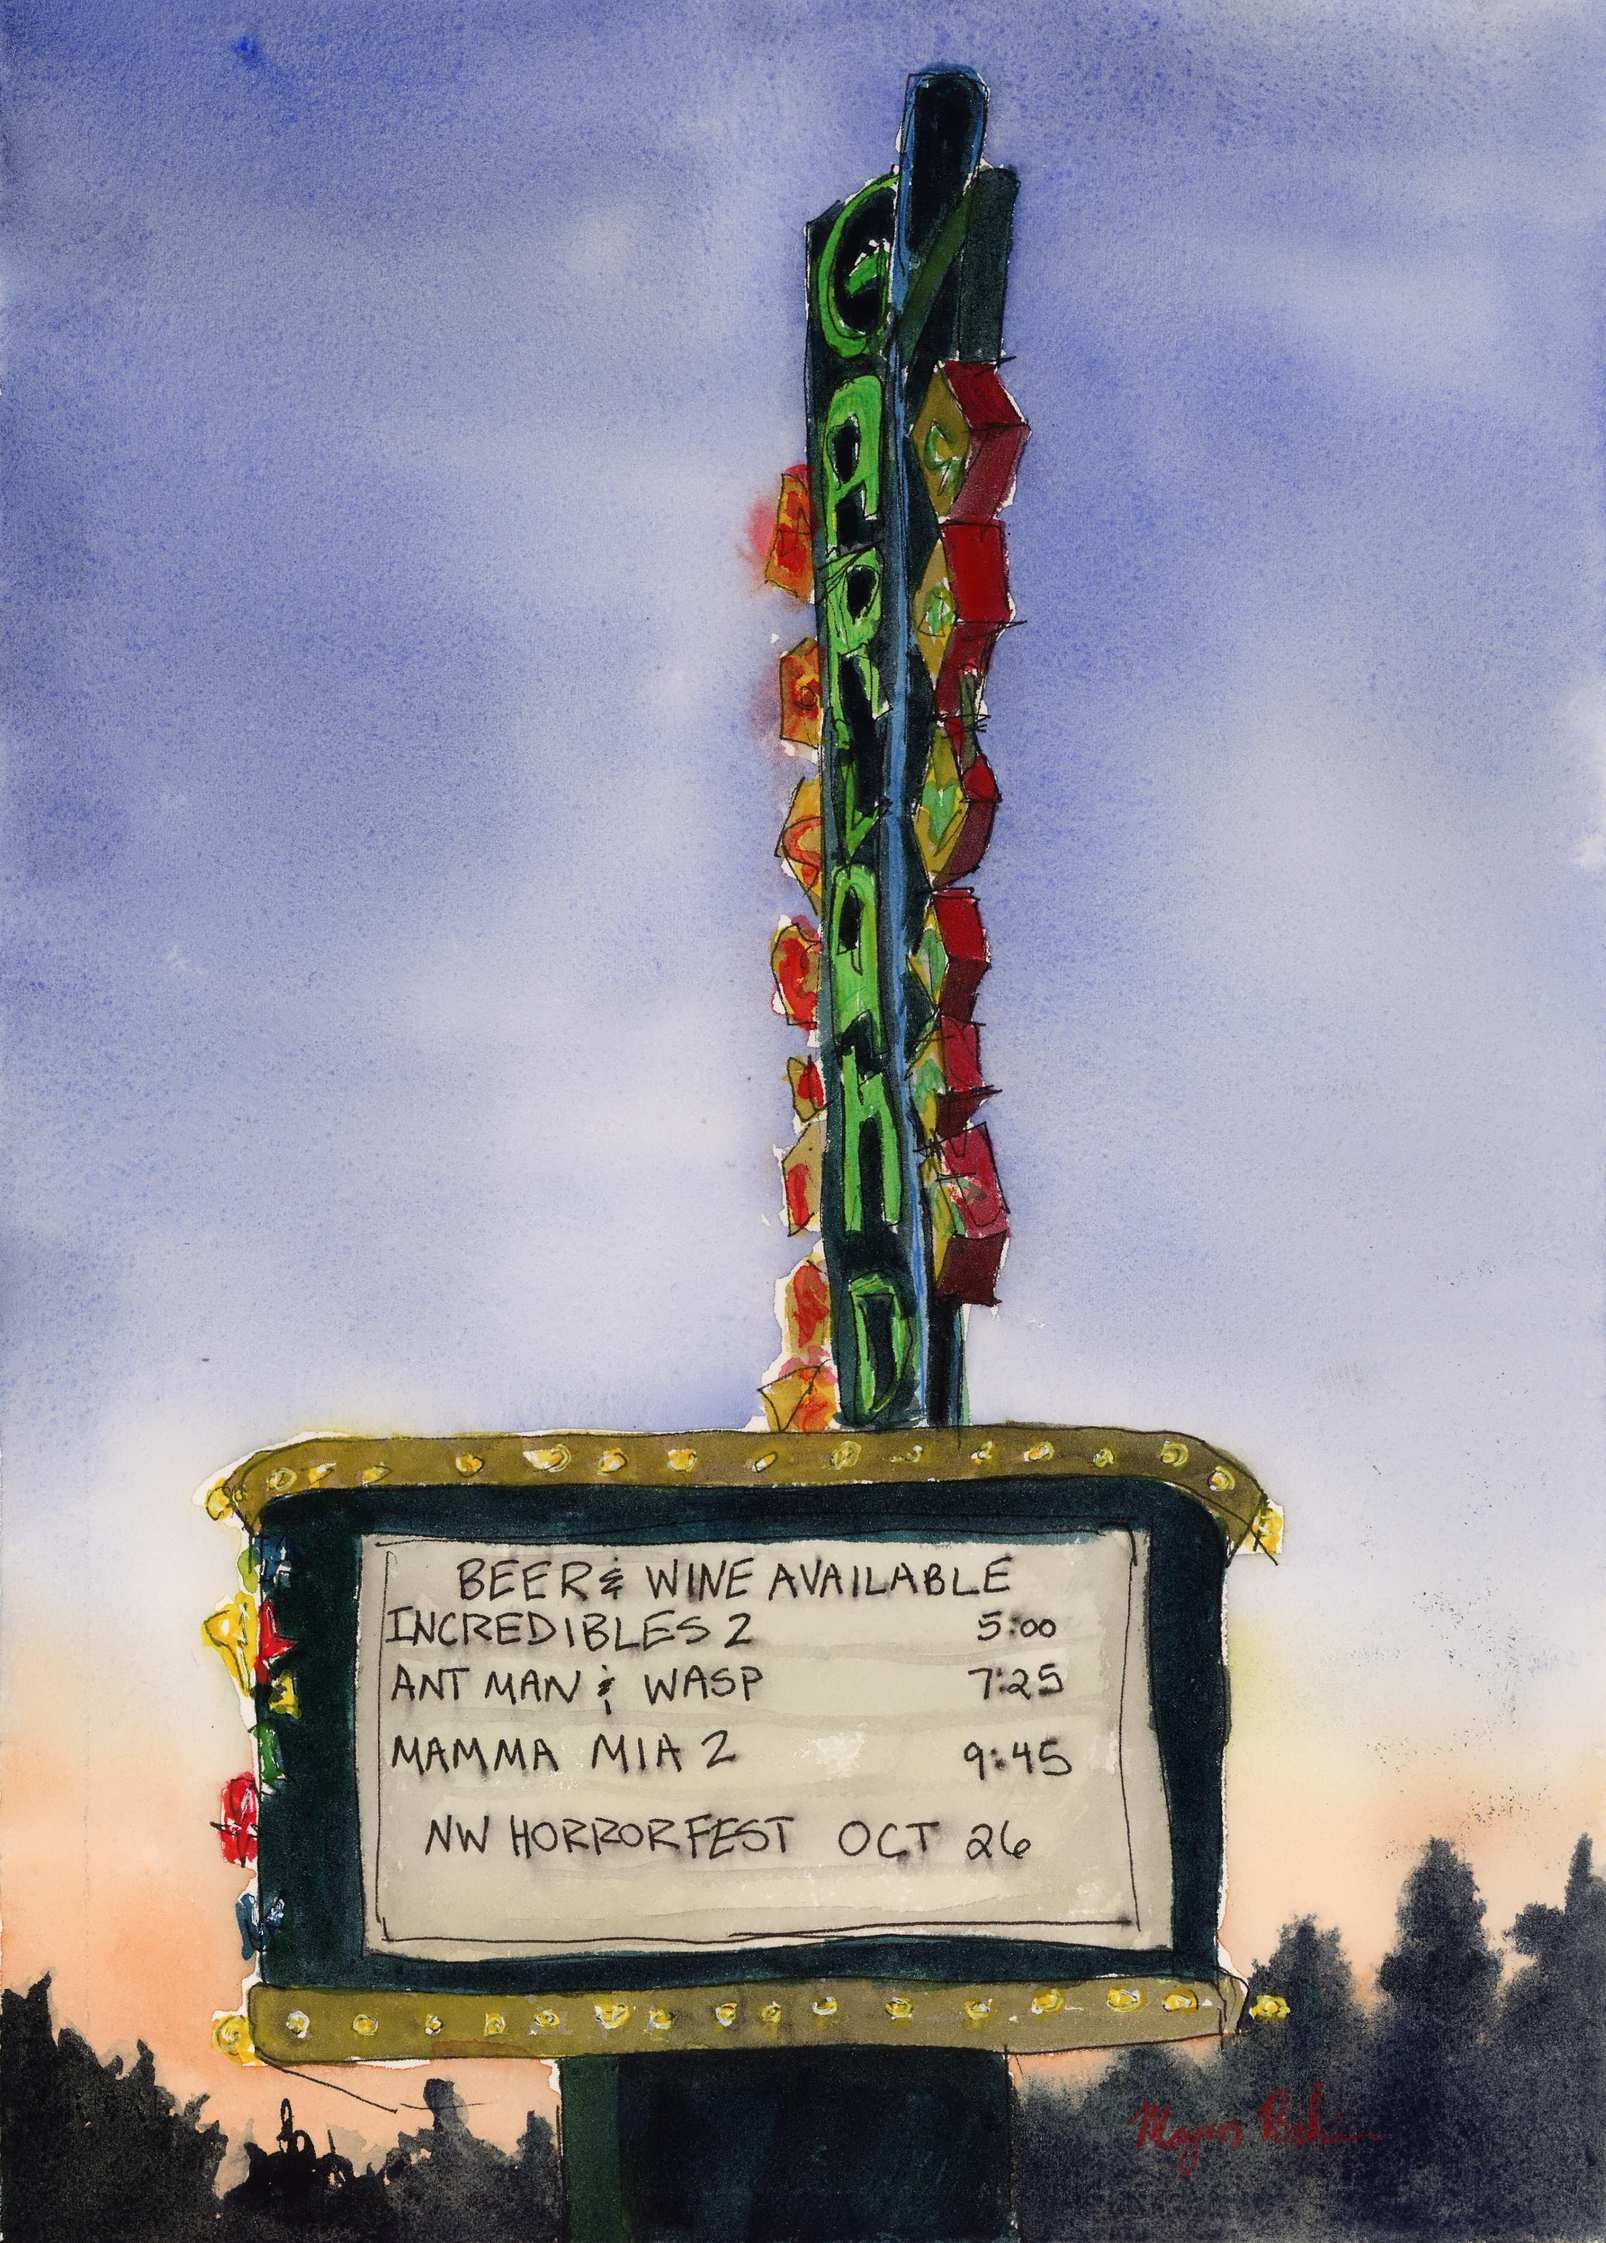 GARLAND
BEER & WINE AVAILABLE
INCREDIBLES 2 5:00
ANT MAN & WASP 7:25
MAMMA MIA 2 9:45
NW HORRORFEST OCT 26